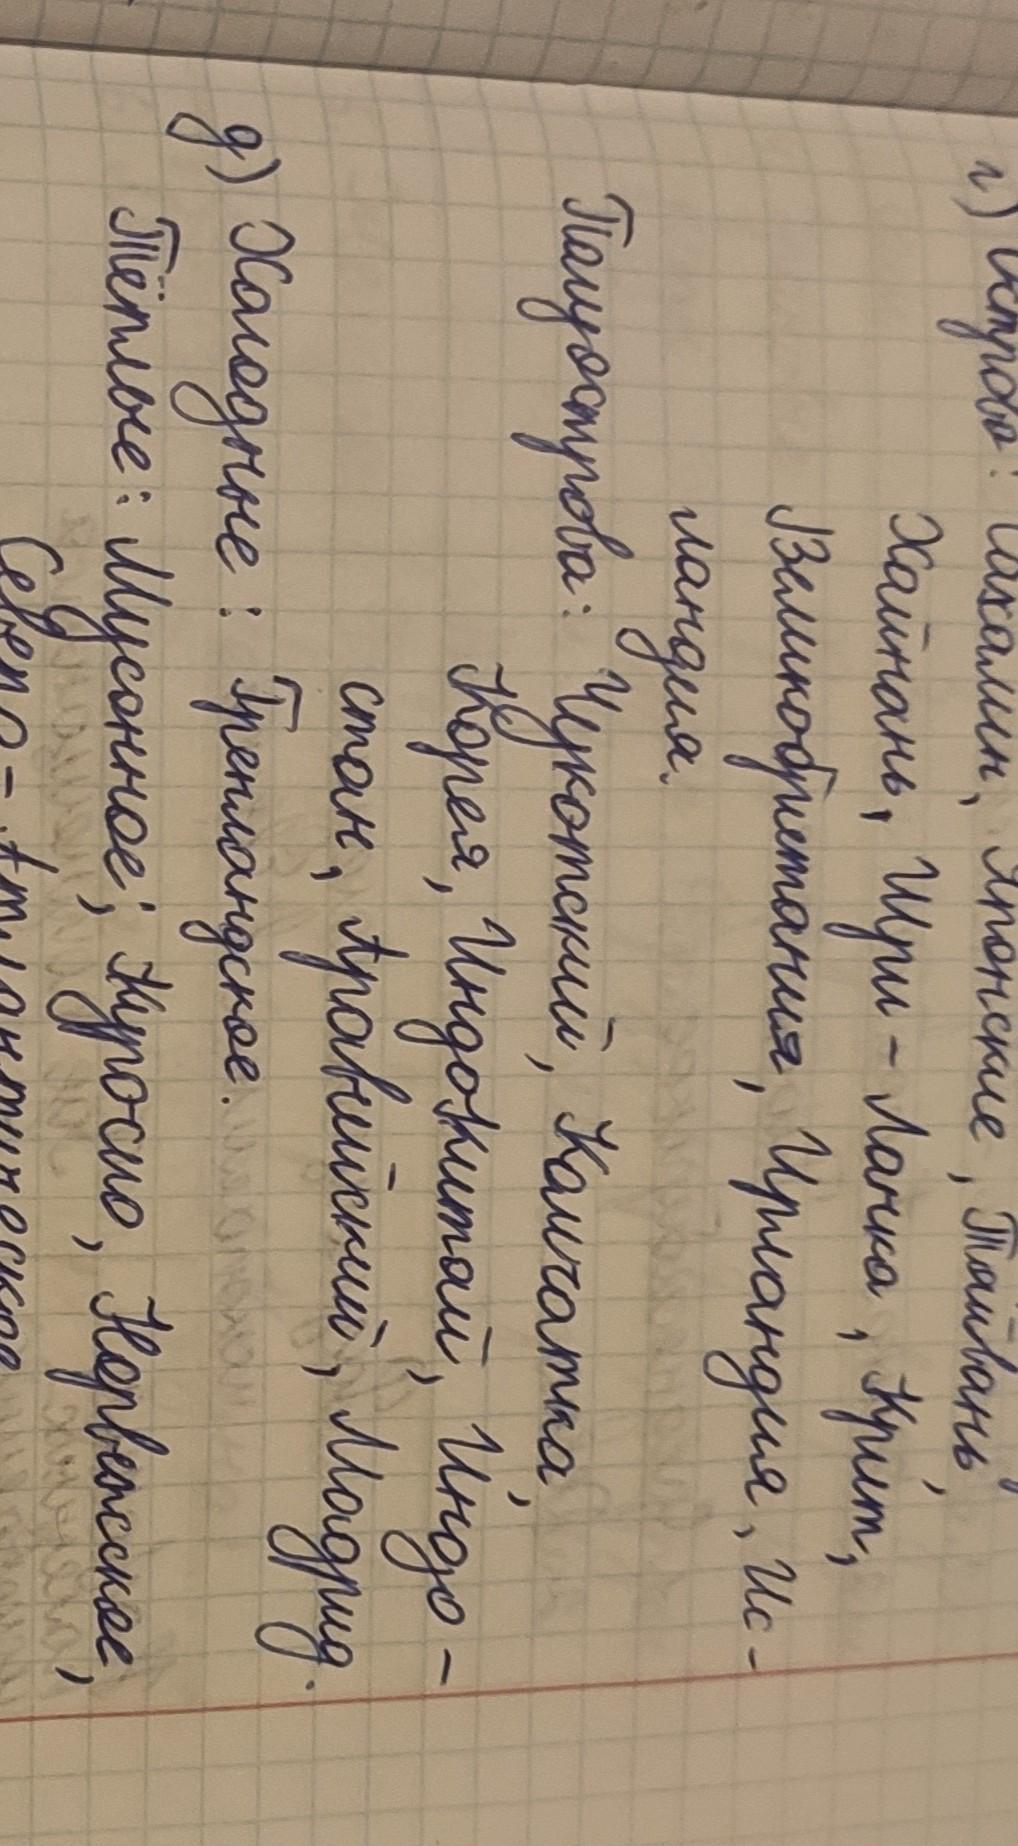 г) Острова: Сахалин, Японские, Тайвань,
Хайнань, Шри-Ланка, Крит,
Великобритания, Ирландия, Ис-
ландия.
Полуострова: Чукотский, Камчатка,
Корея, Индокитай, Индо-
стан, Аравийский, Мадрид.
д) Холодные: Гренландское.
Тёплые: Муссонное; Куросио, Норвежское,
Северо-Атлантическое